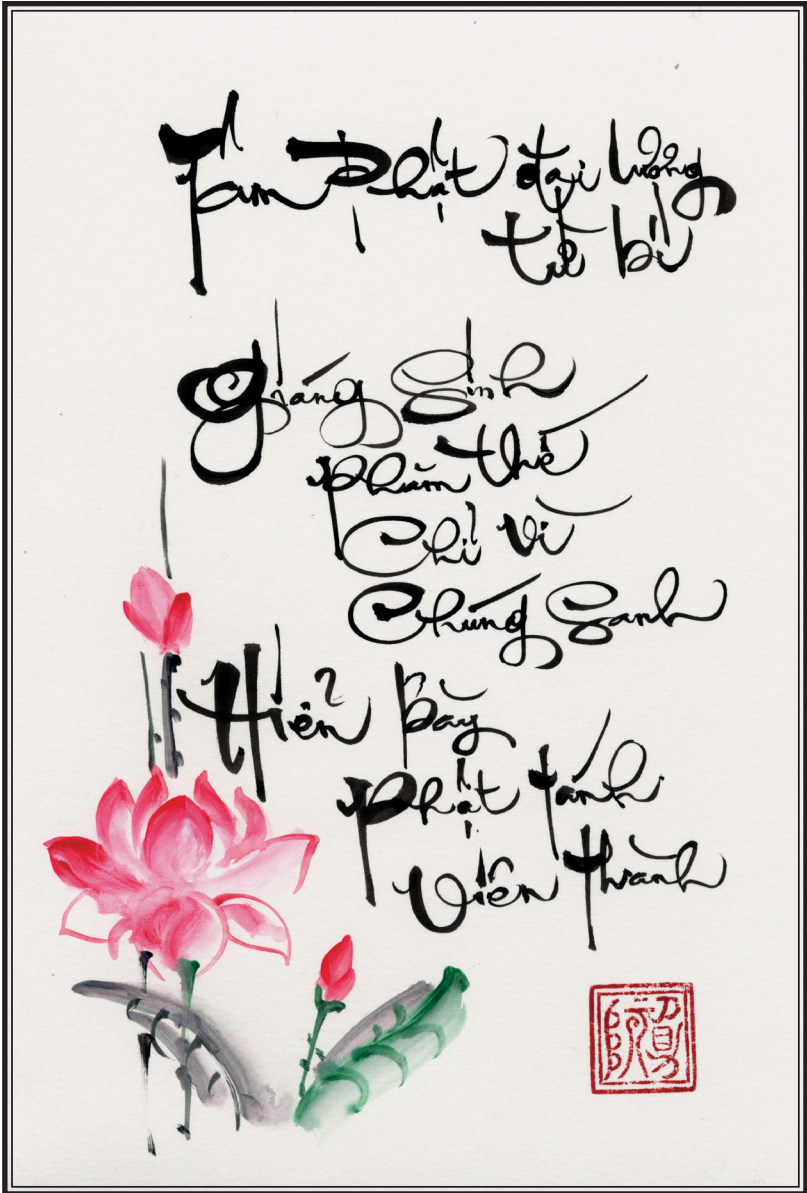 Tâm Phật đại lượng
từ bi
Giáng Sinh
phàm thế
Chỉ vì
Chúng Sanh
Hiển bày
Phật tánh
Viên thành